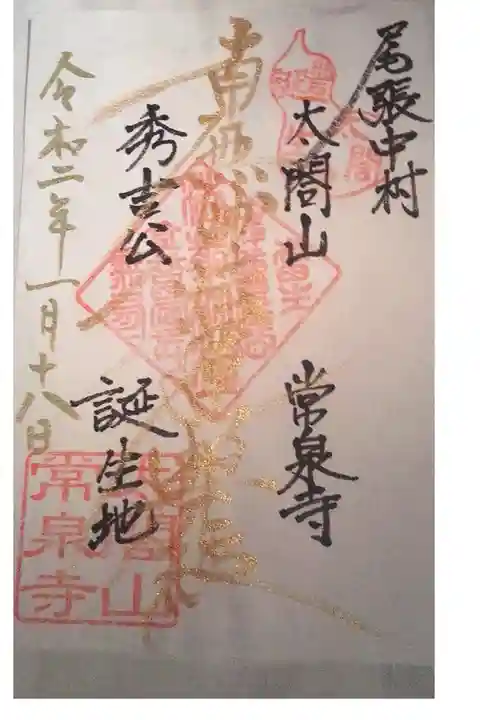 尾張中村
太閤山　常泉寺
南無妙法蓮華経
秀吉公　誕生地
令和二年一月十八日
太閤山
常泉寺